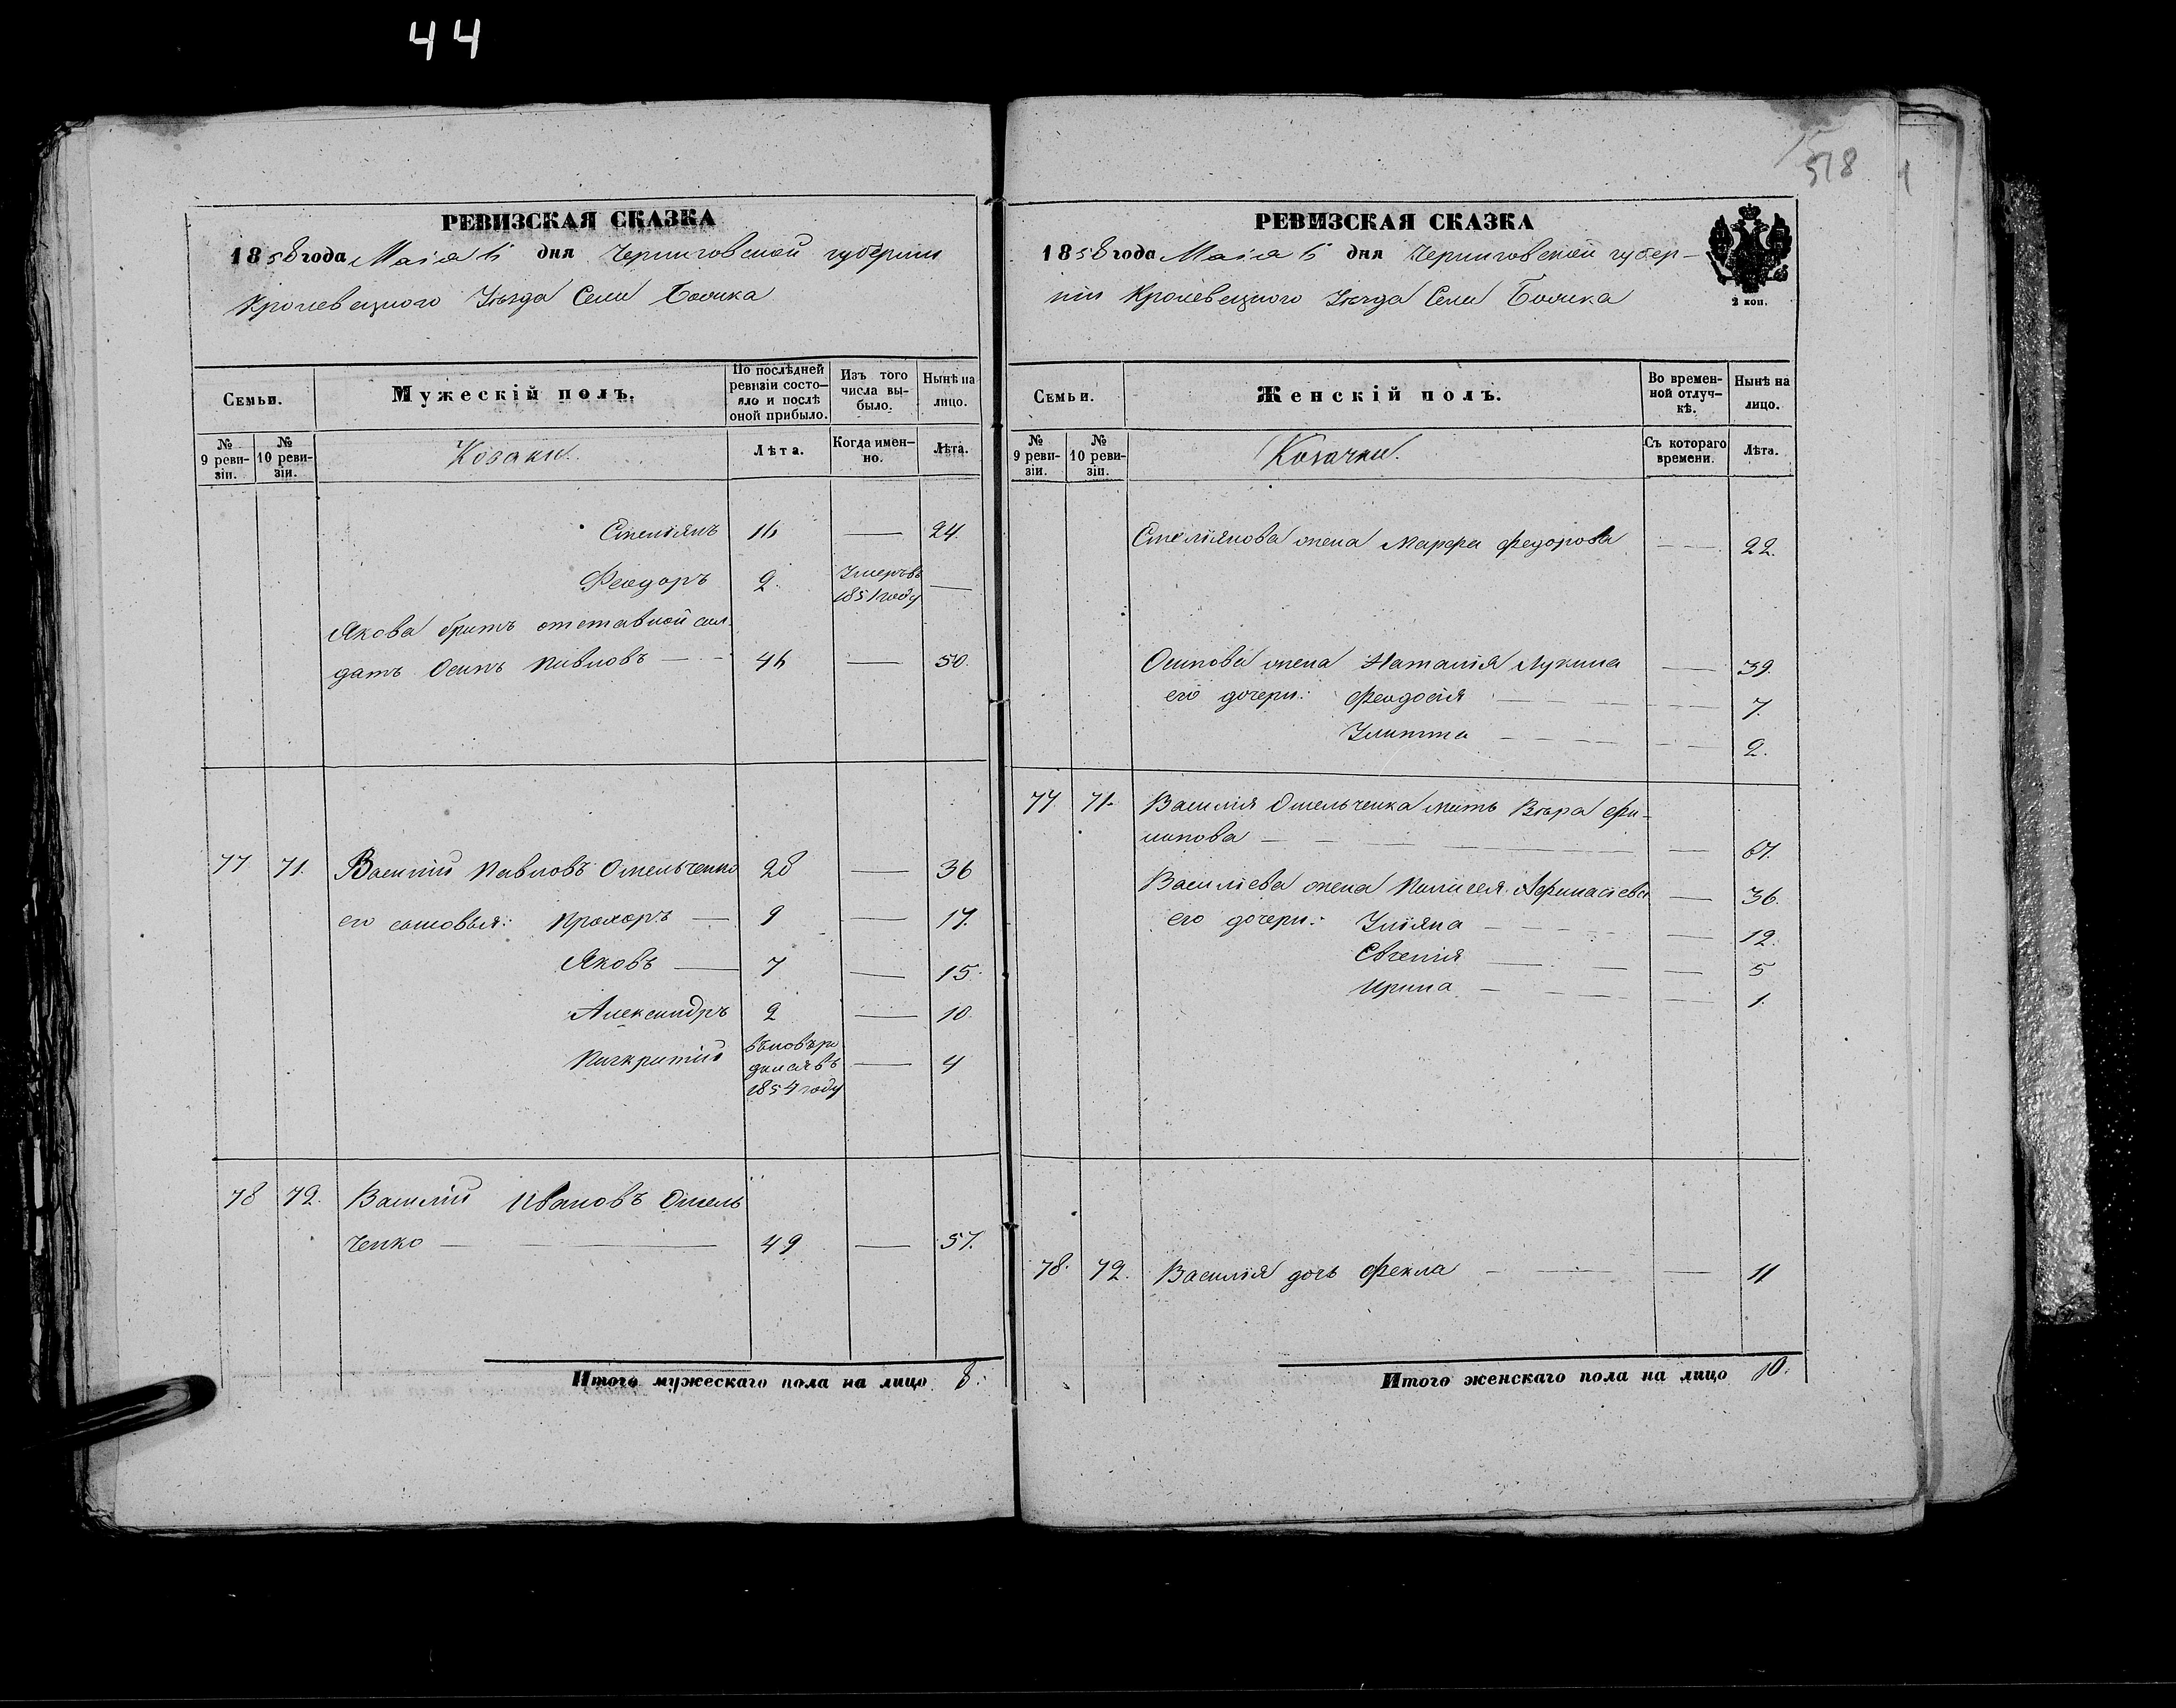 44
518
РЕВИЗСКАЯ СКАЗКА
1858 года Маія 6 дня Черниговской губерніи
Кролевецкого Уѣзда Села
Семьи.
Мужескій полъ.
По послѣдней ревизіи состояло и послѣ оной прибыло.
Изъ того числа выбыло.
Нынѣ на лицо.
№ 9 ревизіи.
№ 10 ревизіи.
Козаки.
Лѣта.
Когда именно.
Лѣта.
Стеліянъ 16 — 24.
Феодоръ 2. Умеръ въ 1851 году —
Якова братъ отставной сол-
датъ Осипъ Павловъ — 46 — 50.
77 71. Василій Павловъ Омельченко 28 — 36
его сыновья: Прохоръ — 9 — 17.
Яковъ — 7 — 15.
Александръ 2 — 10.
Панкратій въновь ро дился въ 1854 году — 4
78 72. Василій Ивановъ Омель
ченко — 49 — 57.
Итого мужескаго пола на лицо 8.
РЕВИЗСКАЯ СКАЗКА
1858 года Маія 6 дня Черниговской губер-
ніи Кролевецкого Уѣзда Села
2 коп.
Семьи.
Женскій полъ.
Во временной отлучкѣ.
Нынѣ на лицо.
№ 9 ревизіи.
№ 10 ревизіи.
Козачки.
Съ котораго времени.
Лѣта.
Стеліянова жена Марфа Федорова — 22.
Осипова жена Наталія Лукина — 39.
его дочери: Феодосія — 7.
Улитта — 2.
77 71. Василія Омельченка мать Вѣра Фи-
липова — 67.
Василіева жена Палагея Афанасіева — 36.
его дочери: Уліяна — 12.
Евгенія — 5
Ирина — 1.
78. 72. Василія дочь Фекла — 11
Итого женскаго пола на лицо 10.